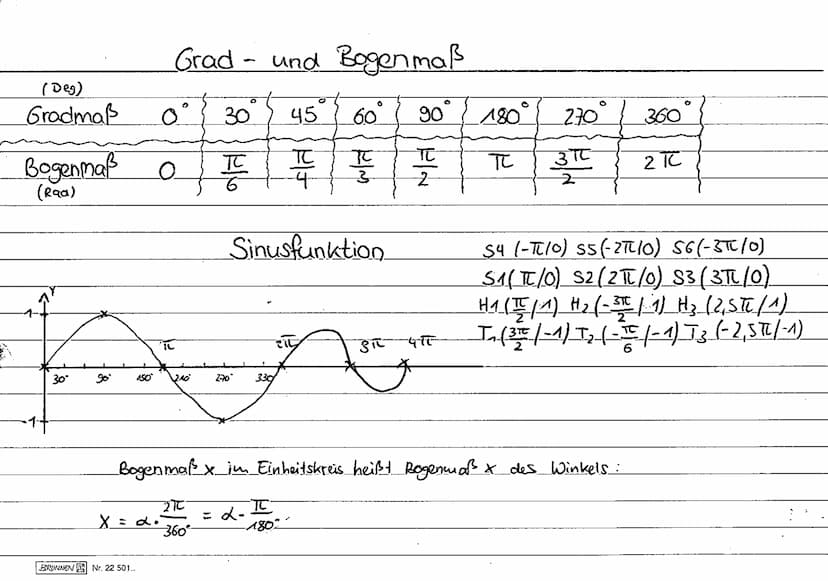 Grad- und Bogenmaß
(Deg)
Gradmaß 0° 30° 45° 60° 90° 180° 270° 360°
Bogenmaß 0 π/6 π/4 π/3 π/2 π 3π/2 2π
(Rad)
Sinusfunktion
S4 (-π/0) S5 (-2π/0) S6 (-3π/0)
S1 (π/0) S2 (2π/0) S3 (3π/0)
H1 (π/2 /1) H2 (-3π/2 /1) H3 (2,5π/1)
T1 (3π/2 /-1) T2 (-π/6 /-1) T3 (-2,5π/-1)
Y
1
π 2π 3π 4π
30° 90° 150° 210° 270° 330°
-1
Bogenmaß x im Einheitskreis heißt Bogenmaß x des Winkels:
x = α · 2π/360° = α · π/180°
BRUNNEN Nr. 22 501..